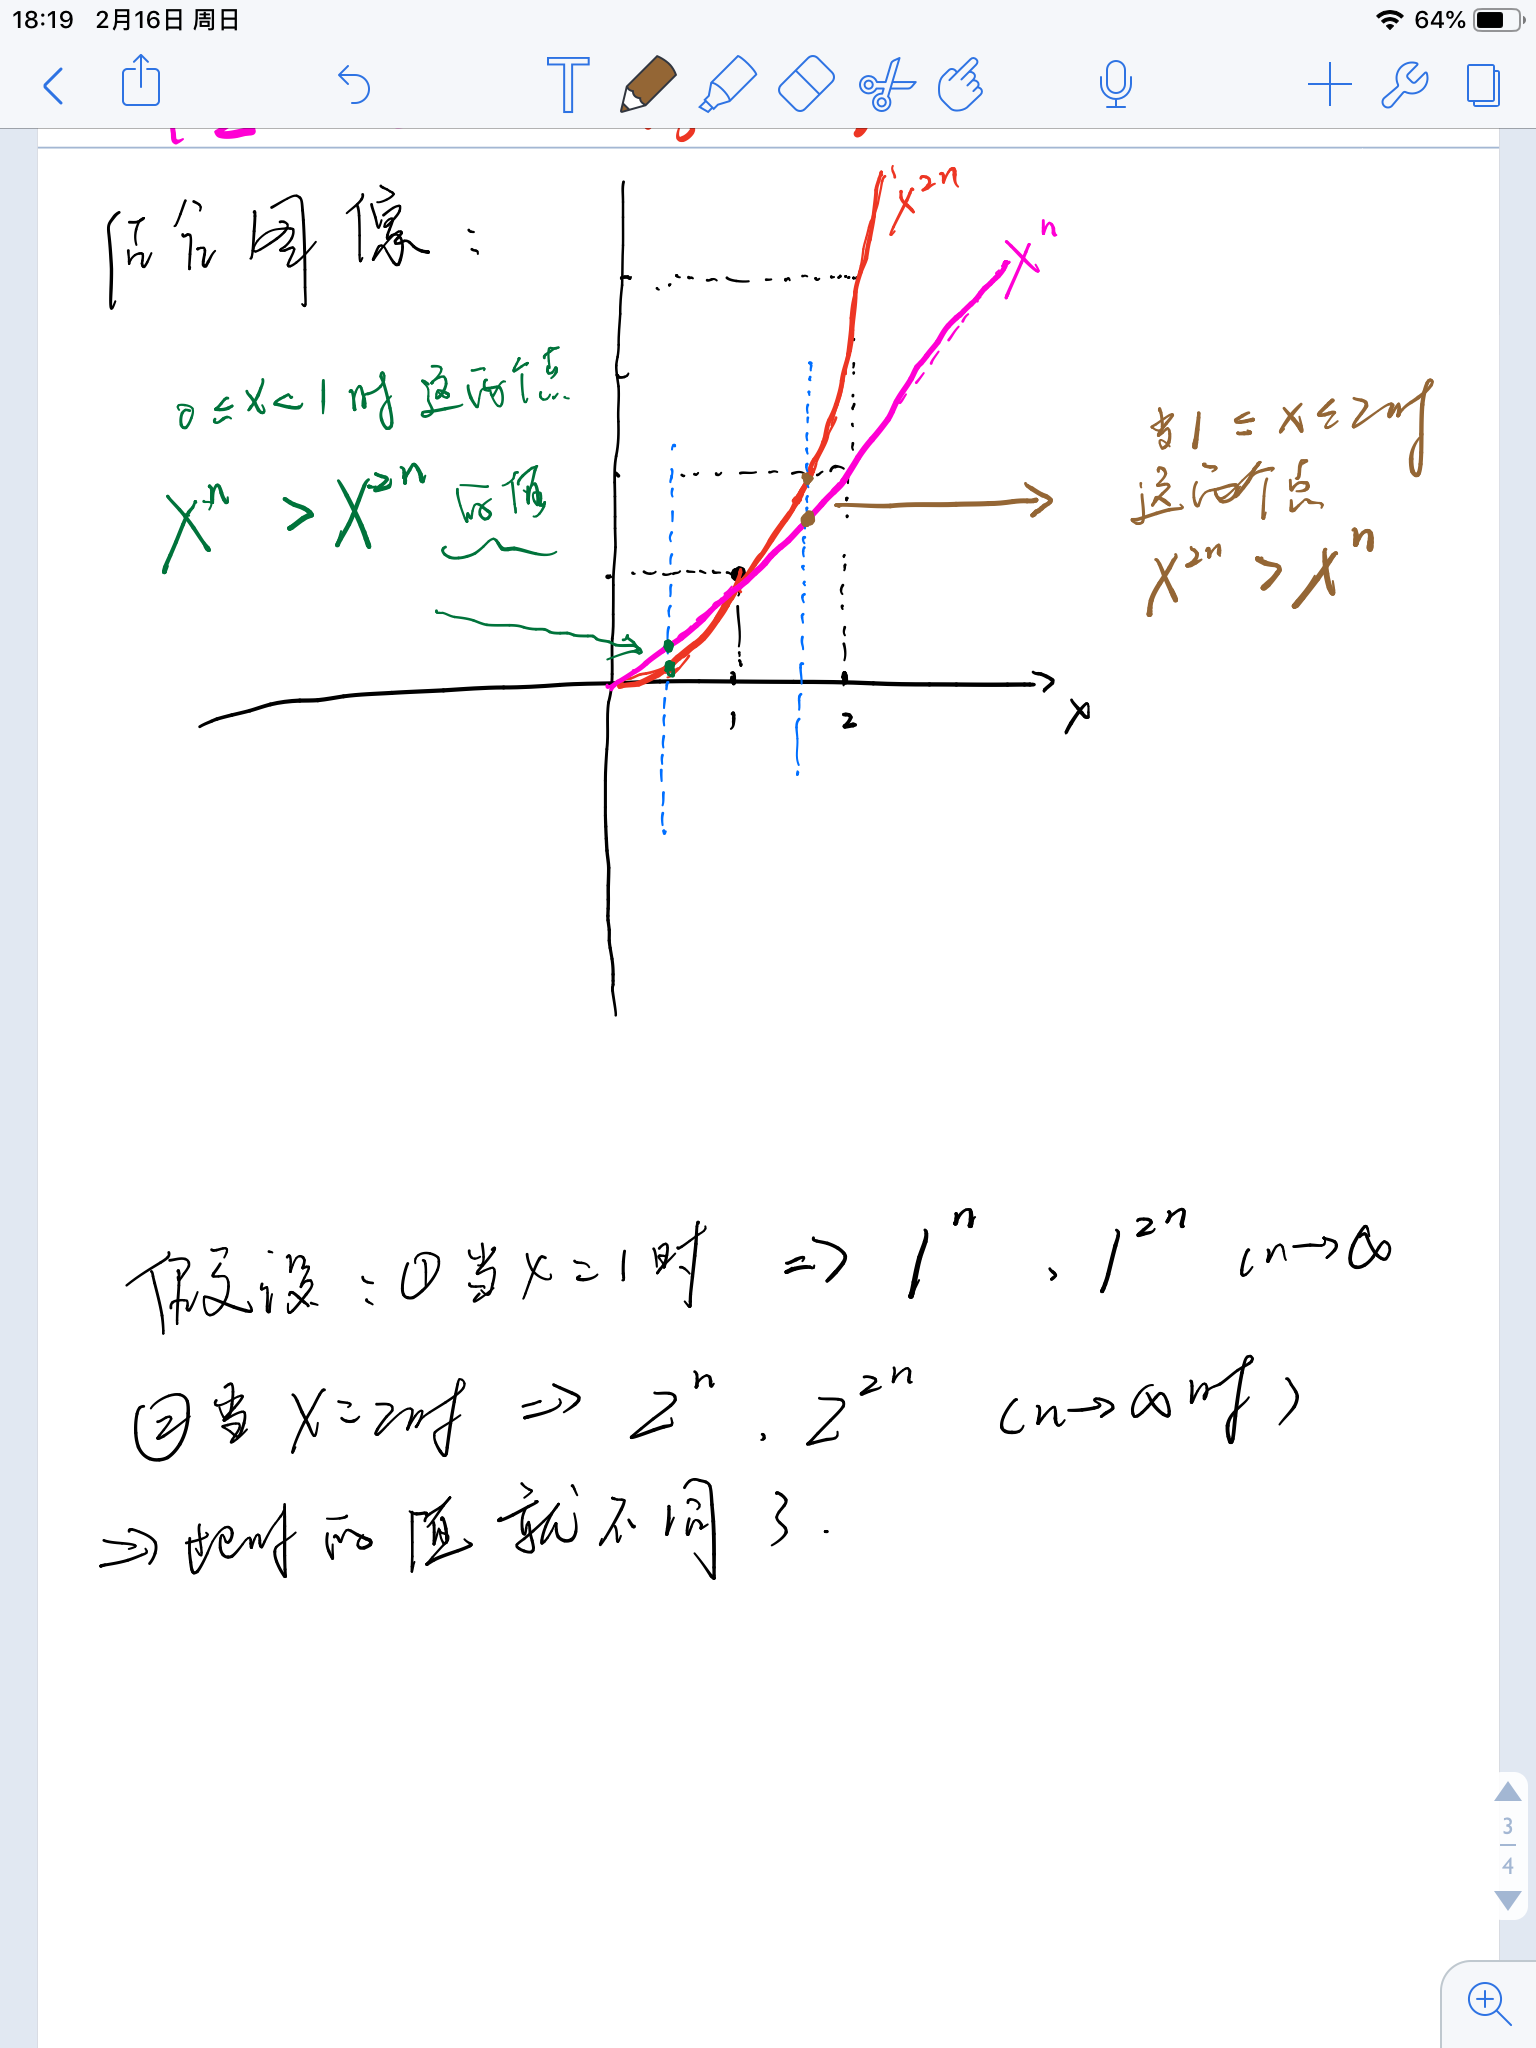 18:19 2月16日 周日 64%
T
结合图像:
x²ⁿ
xⁿ
0≤x<1时 这两个点
xⁿ > x²ⁿ 的值
当1≤x≤2时
这两个点
x²ⁿ > xⁿ
1 2 x
假设:①当x=1时 => 1ⁿ、1²ⁿ (n→∞
②当x=2时 => 2ⁿ、2²ⁿ (n→∞时)
=> 此时的值就不同了.
3
4